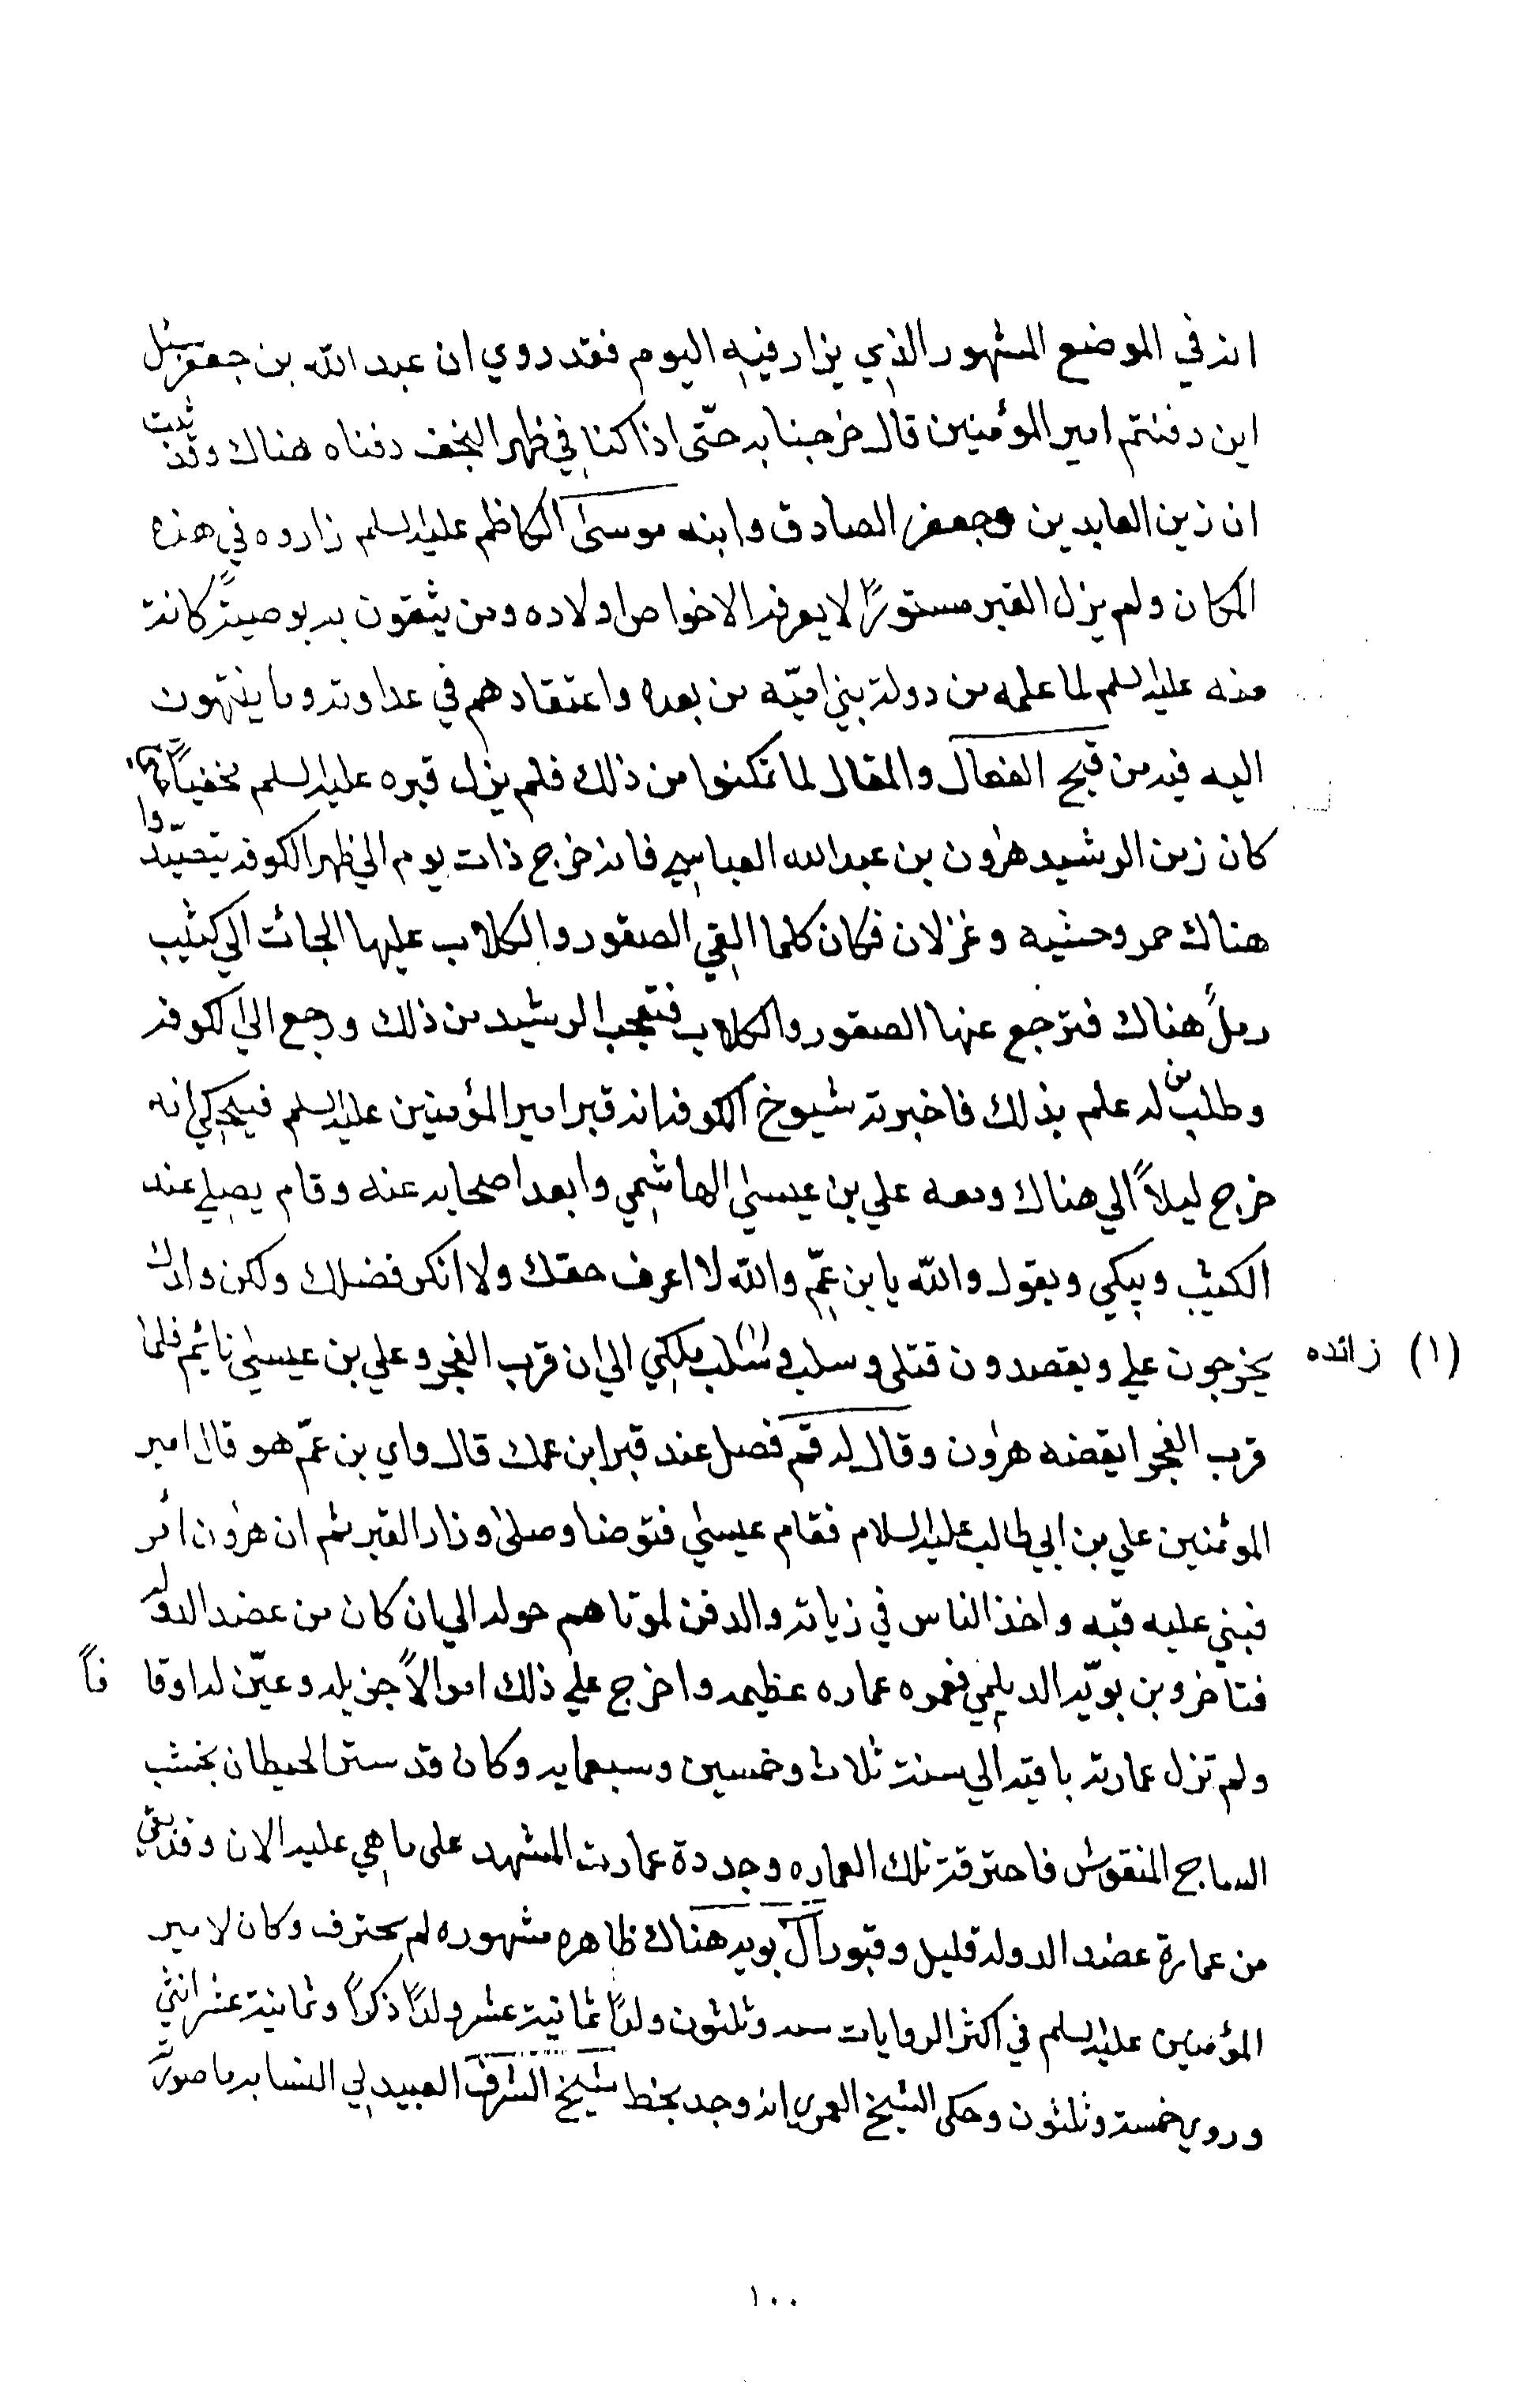 انه في الموضع المشهور الذي يزار فيه اليوم فقد روي ان عبد الله بن جعفر سئل
اين دفنتم امير المؤمنين قال خرجنا به حتّى اذا كنا في ظهر النجف دفناه هناك وقد ثبت
ان زين العابدين وجعفر الصادق وابنه موسى الكاظم عليه السلم زاروه في هذه
المكان ولم يزل القبر مستورًا لا يعرفه الا خواص اولاده ومن يثقون به بوصيةً كانة
منه عليه السلم لما علمه من دولة بني اميّه من بعده واعتقادهم في عداوته وما ينتهون
اليه فيه من قبح الفعال والمقال لما تمكنوا من ذلك فلم يزل قبره عليه السلم مخفيّاً حتى
كان زمن الرشيد هرون بن عبد الله العباسي فانه خرج ذات يوم الي ظهر الكوفه يتصيّد وا
هناك حمر وحشيه وغزلان فكان كلما القي الصقور والكلاب عليها الجائت الي كثيب
رملً هناك فترجع عنها الصقور والكلاب فتعجب الرشيد من ذلك ورجع الي الكوفه
وطلب من له علم بذلك فاخبرته شيوخ الكوفه انه قبر امير المؤمنين عليه السلم فيحكي انه
خرج ليلاً الي هناك ومعه علي بن عيسى الهاشمي وابعد اصحابه عنه وقام يصلي عند
الكثيب ويبكي ويقول والله يا بن عمّ والله لا اعرف حقك ولا انكر فضلك ولكن ولدك
يخرجون علي ويقصدون قتلي وسلب وسلب (١) ملكي الي ان قرب الفجر وعلي بن عيسى نائم فلما
(١) زائده
قرب الفجر ايقضه هرون وقال له قم فصل عند قبر ابن عمك قال واي بن عمّ هو قال امير
المؤمنين علي بن ابي طالب عليه السلام فقام عيسى فتوضا وصلى وزار القبر ثم ان هرون امر
فبني عليه قبه واخذ الناس في زيارته والدفن لموتاهم حوله الي ان كان من عضد الدوله
فتاخرو بن بويّه الديلمي فعمره عماره عظيمه واخرج علي ذلك اموالاً جزيله وعيّن له اوقا فاً
ولم تزل عمارته باقيه الي سنة ثلاث وخمسين وسبعمايه وكان قد ستر الحيطان بخشب
الساج المنقوش فاحترقة تلك العماره وجددة عمارت المشهد على ما هي عليه الان وقد بقي
من عمارة عضد الدوله قليل وقبور آل بويه هناك ظاهره مشهوره لم يحترف وكان لامير
المؤمنين عليه السلم في اكثر الروايات سته وثلثون ولدًا ثمانية عشر ولدًا ذكرًا وثمانية عشر انثي
وروي خمسة وثلثون وحكى الشيخ العمري انه وجد بخط شيخ الشرف العبيدلي النسابه ما صورته
١٠٠